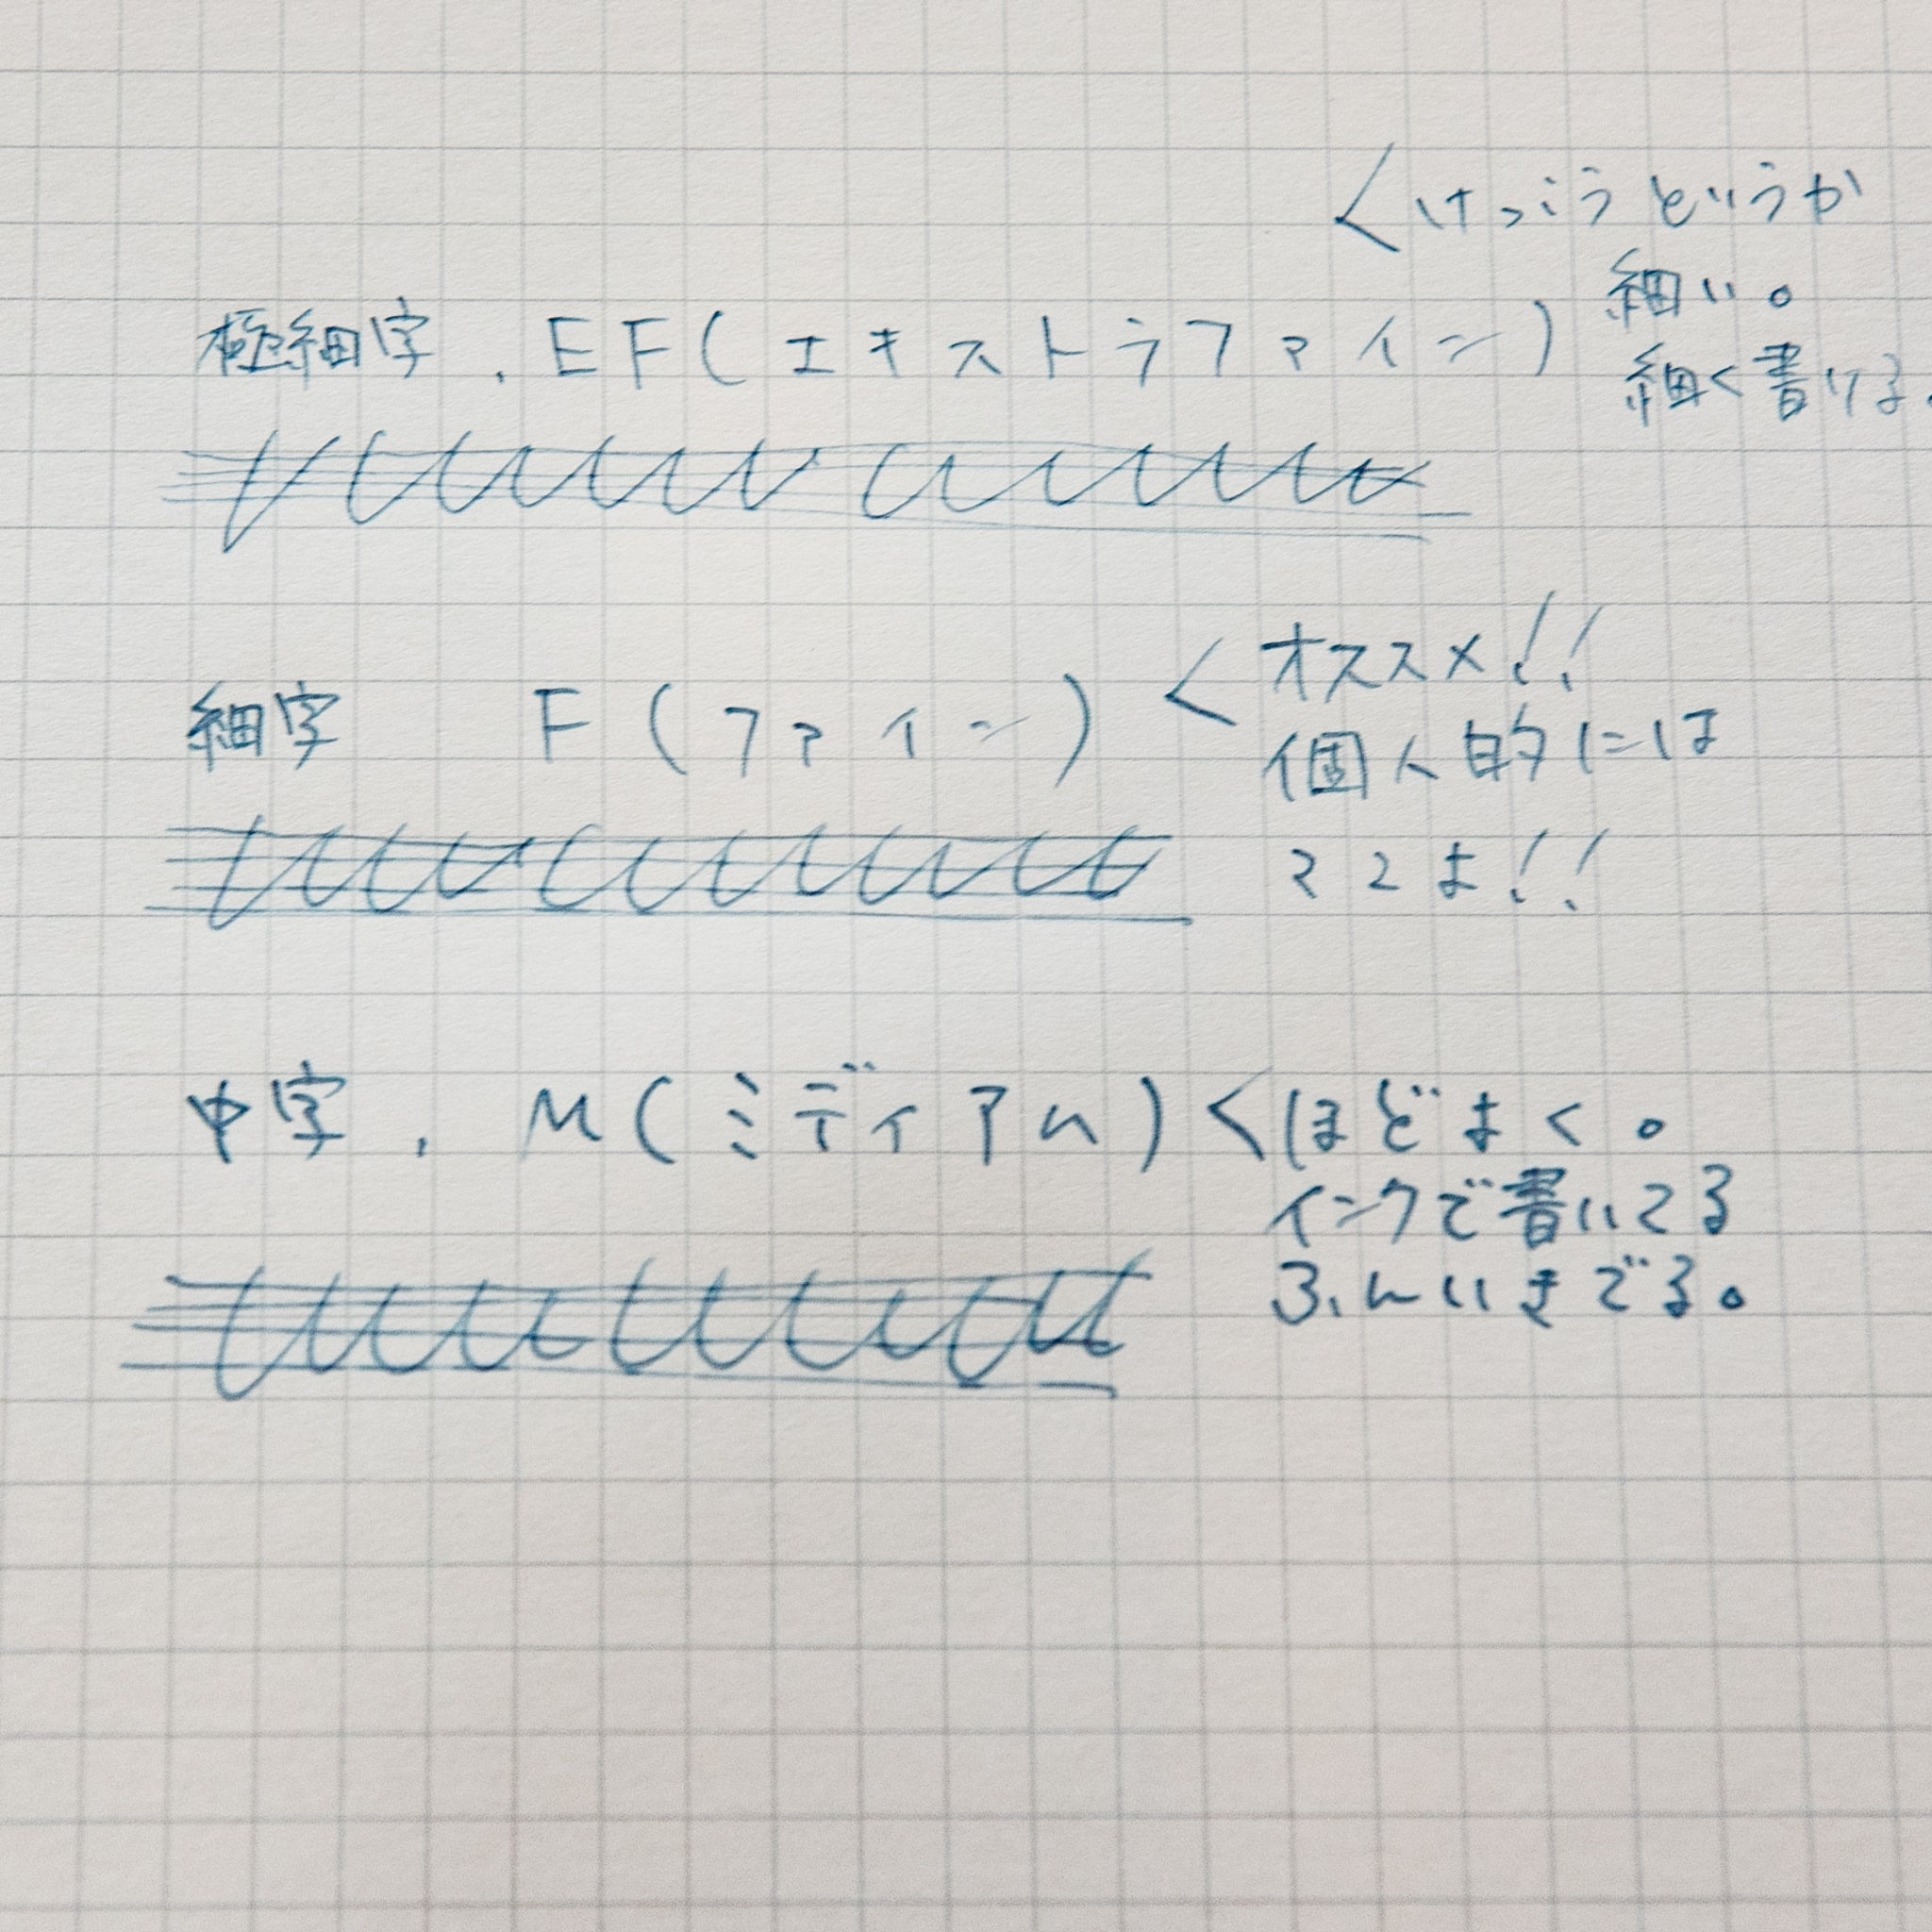 <けっこうというか
細い。
極細字. EF(エキストラファイン)
細く書ける。
細字 F (ファイン) < オススメ!!
個人的には
ココよ!!
中字. M(ミディアム) <ほどよく。
インクで書いてる
ふんいきでる。